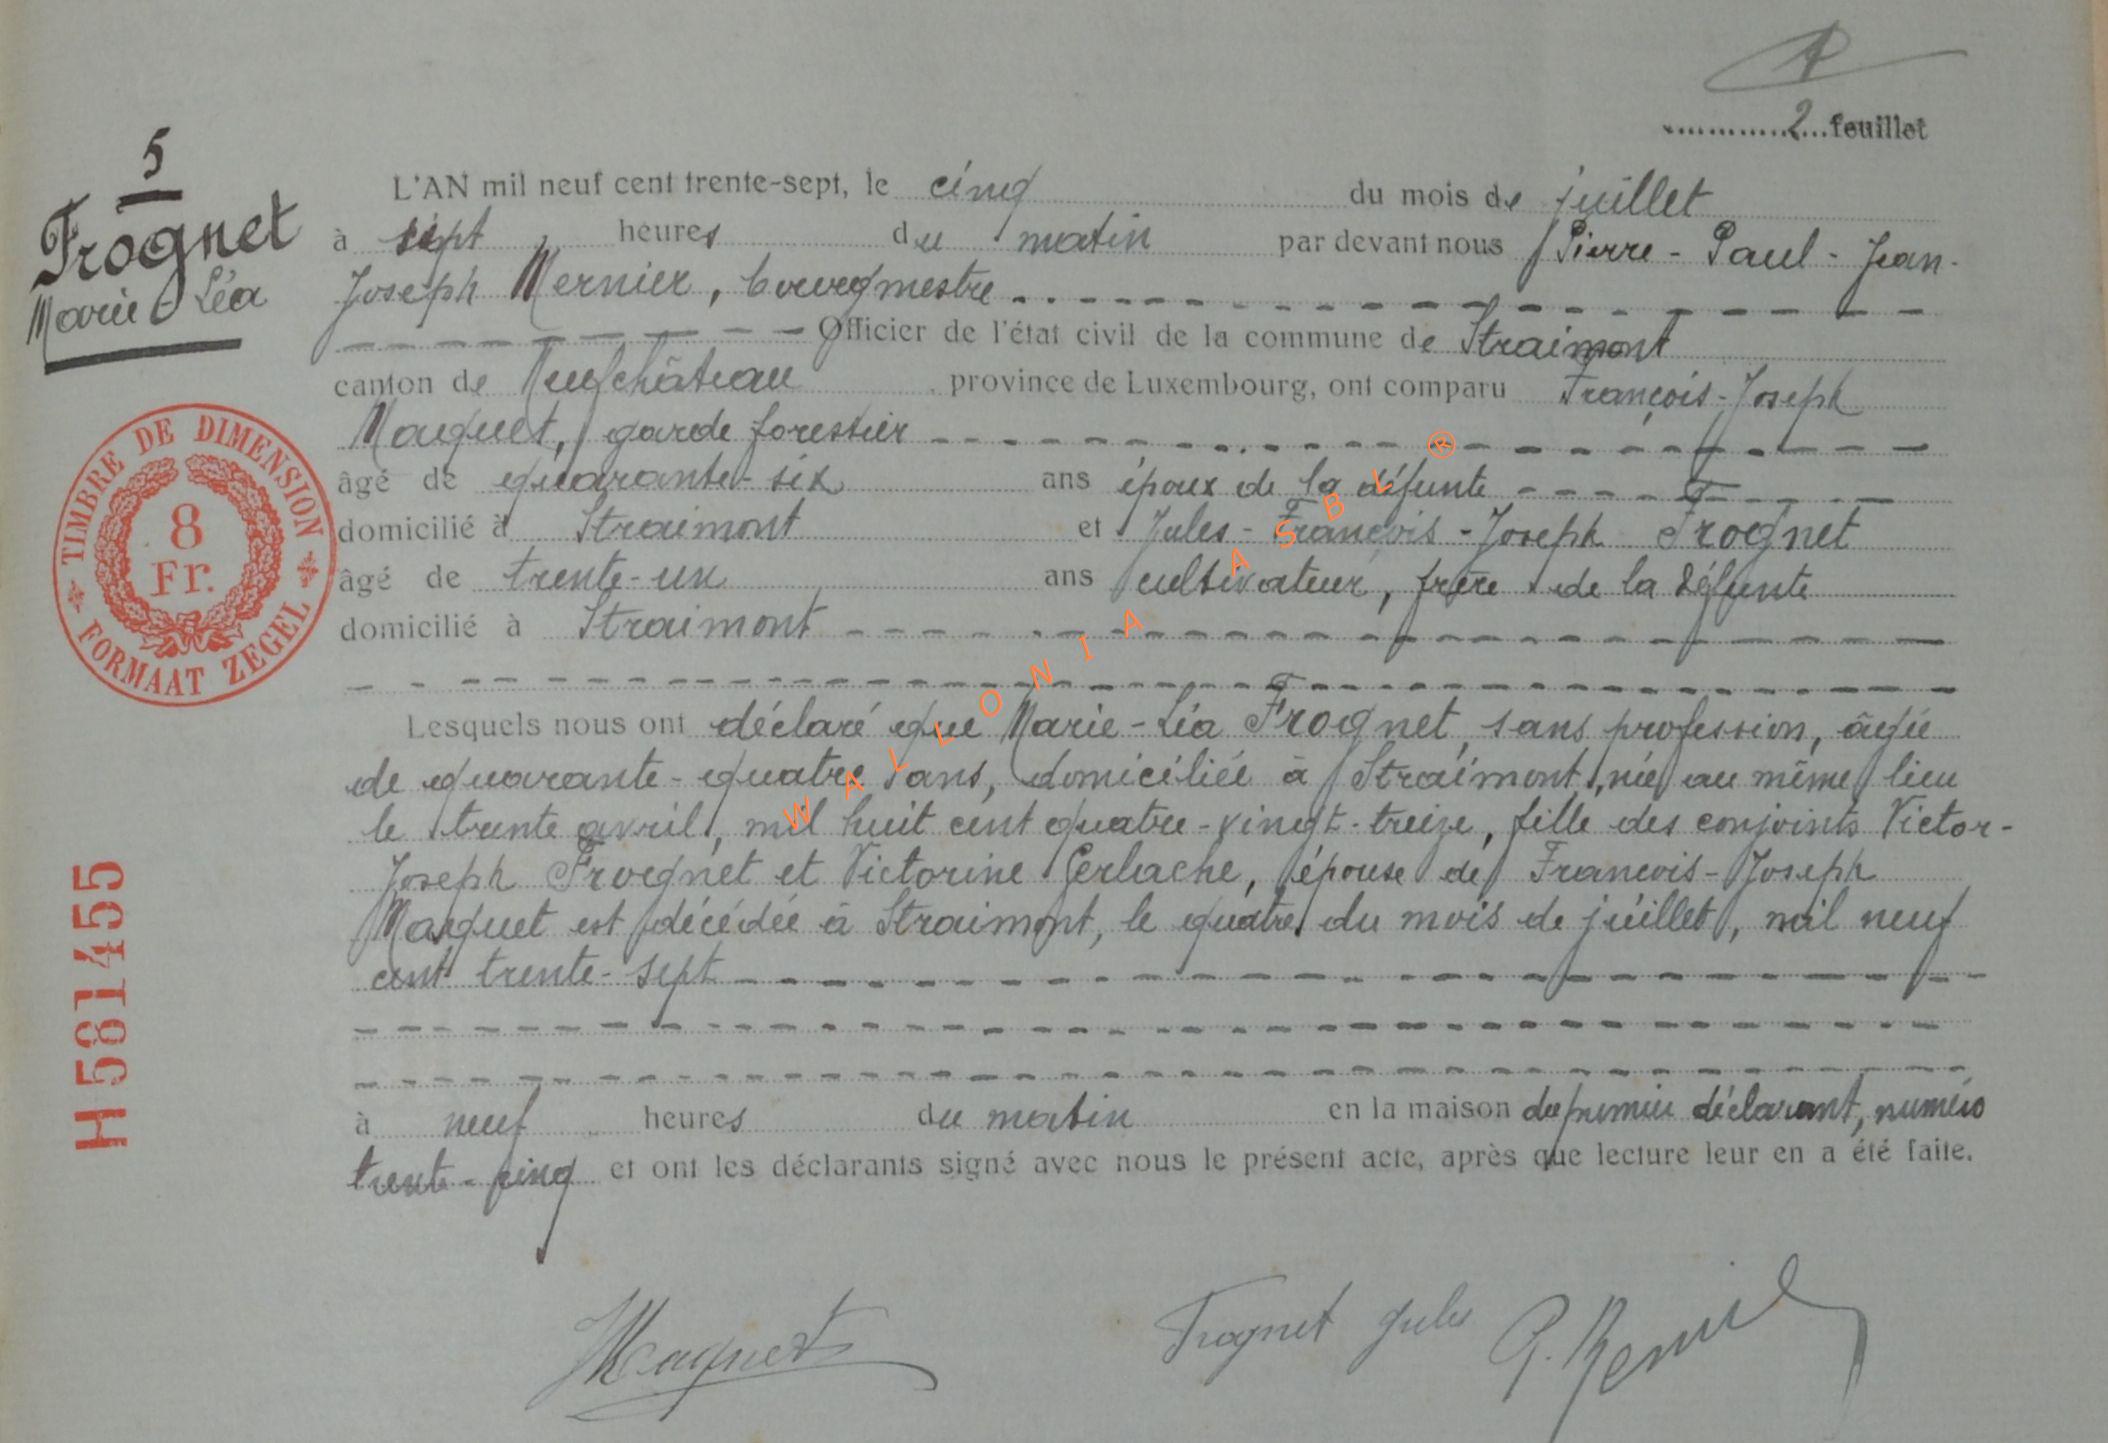 2 feuillet
5
Frognet
Marie-Léa
L'AN mil neuf cent trente-sept, le cinq du mois de juillet
à sept heures du matin par devant nous Pierre - Paul - Jean -
Joseph Mernier, bourgmestre
Officier de l'état civil de la commune de Straimont
canton de Neufchâteau province de Luxembourg, ont comparu François-Joseph
Maquet, garde forestier
âgé de quarante-six ans époux de la défunte
domicilié à Straimont et Jules - François - Joseph Frognet
âgé de trente-un ans cultivateur, frère de la défunte
domicilié à Straimont
Lesquels nous ont déclaré que Marie-Léa Frognet, sans profession, âgée
de quarante-quatre ans, domiciliée à Straimont, née au même lieu
le trente avril, mil huit cent quatre-vingt-treize, fille des conjoints Victor-
Joseph Frognet et Victorine Gerlache, épouse de François-Joseph
Maquet est décédée à Straimont, le quatre du mois de juillet, mil neuf
cent trente-sept
à neuf heures du matin en la maison du premier déclarant, numéro
trente-cinq et ont les déclarants signé avec nous le présent acte, après que lecture leur en a été faite.
Maquet
Frognet Jules
TIMBRE DE DIMENSION
8
Fr.
FORMAAT ZEGEL
H581455
WALLONIA ASBL ®